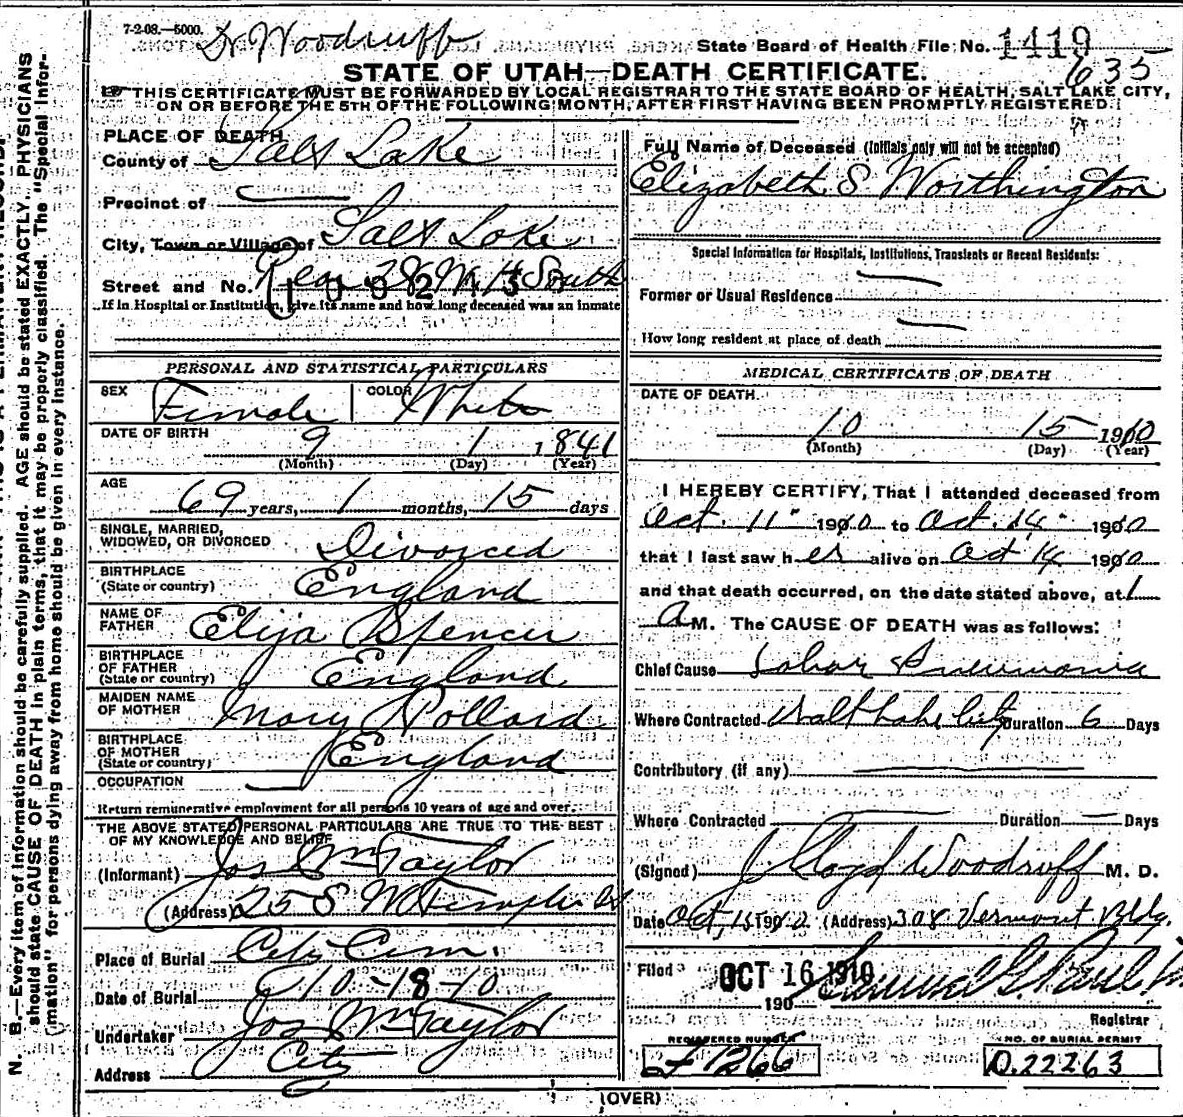 7-2-08.—5000.
Dr Woodruff
State Board of Health File No. 1419
635
STATE OF UTAH—DEATH CERTIFICATE.
THIS CERTIFICATE MUST BE FORWARDED BY LOCAL REGISTRAR TO THE STATE BOARD OF HEALTH, SALT LAKE CITY,
ON OR BEFORE THE 5TH OF THE FOLLOWING MONTH, AFTER FIRST HAVING BEEN PROMPTLY REGISTERED.
PLACE OF DEATH
County of Salt Lake
Precinct of —
City, Town or Village of Salt Lake
Street and No. Rear 38 W. 4 South
If in Hospital or Institution, give its name and how long deceased was an inmate
Full Name of Deceased (Initials only will not be accepted)
Elizabeth S Worthington
Special Information for Hospitals, Institutions, Transients or Recent Residents:
Former or Usual Residence —
How long resident at place of death —
PERSONAL AND STATISTICAL PARTICULARS
SEX Female COLOR White
DATE OF BIRTH 9 1 1841
(Month) (Day) (Year)
AGE
69 years, 1 months, 15 days
SINGLE, MARRIED,
WIDOWED, OR DIVORCED Divorced
BIRTHPLACE
(State or country) England
NAME OF
FATHER Elija Spencer
BIRTHPLACE
OF FATHER
(State or country) England
MAIDEN NAME
OF MOTHER Mary Pollard
BIRTHPLACE
OF MOTHER
(State or country) England
OCCUPATION —
Return remunerative employment for all persons 10 years of age and over.
THE ABOVE STATED PERSONAL PARTICULARS ARE TRUE TO THE BEST
OF MY KNOWLEDGE AND BELIEF
(Informant) Jos Wm Taylor
(Address) 25 S W Temple
Place of Burial City Cem.
Date of Burial 10-18-10
Undertaker Jos Wm Taylor
Address City
MEDICAL CERTIFICATE OF DEATH
DATE OF DEATH
10 15 1910
(Month) (Day) (Year)
I HEREBY CERTIFY, That I attended deceased from
Oct. 11 1910 to Oct. 14 1910
that I last saw her alive on Oct 14 1910
and that death occurred, on the date stated above, at 1
A M. The CAUSE OF DEATH was as follows:
Chief Cause Lobar Pneumonia
Where Contracted Salt Lake City Duration 6 Days
Contributory (if any) —
Where Contracted — Duration — Days
(Signed) J Lloyd Woodruff M. D.
Date Oct, 15 1910 (Address) 308 Vermont Bldg.
Filed OCT 16 1910 Samuel G. Paul
190
Registrar
REGISTERED NUMBER
1266
NO. OF BURIAL PERMIT
D.22263
(OVER)
N. B.—Every item of information should be carefully supplied. AGE should be stated EXACTLY. PHYSICIANS
should state CAUSE OF DEATH in plain terms, that it may be properly classified. The "Special Infor-
mation" for persons dying away from home should be given in every instance.